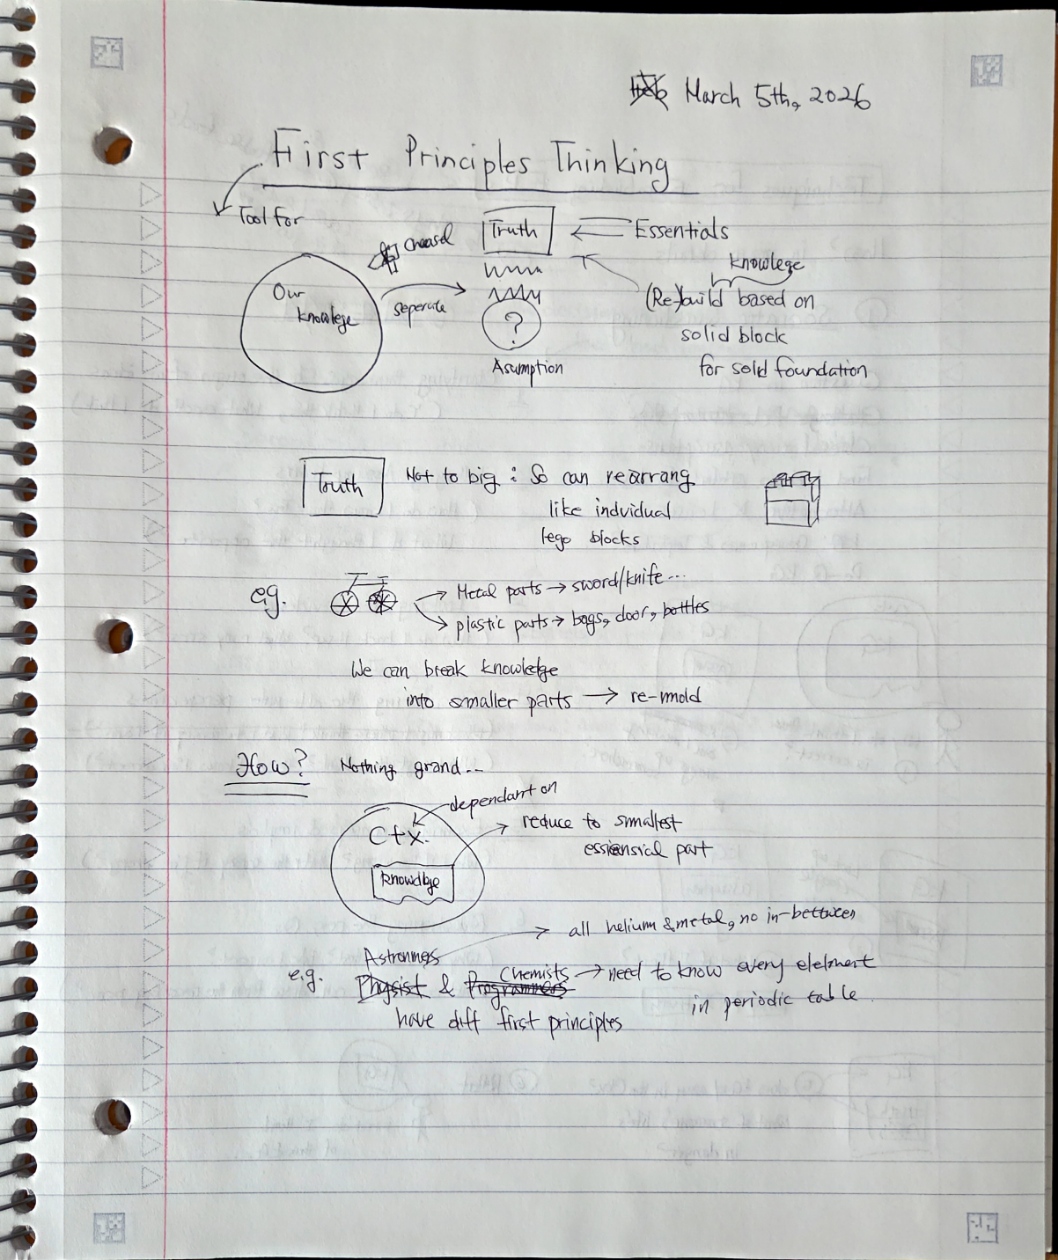 March 5th, 2026
First Principles Thinking
Tool for
Our
knowlege
seperate
Truth
?
Asumption
Essentials
knowlege
(Re-)build based on
solid block
for solid foundation
Truth
Not to big : So can rearrang
like indvidual
lego blocks
e.g.
Metal parts → sword/knife...
plastic parts → bags, door, bottles
We can break knowledge
into smaller parts → re-mold
How? Nothing grand...
dependant on
C+x.
reduce to smallest
part
all helium & metal, no in-between
e.g.
Physist & Programmers
Chemists → need to know every element
in periodic table
have diff first principles